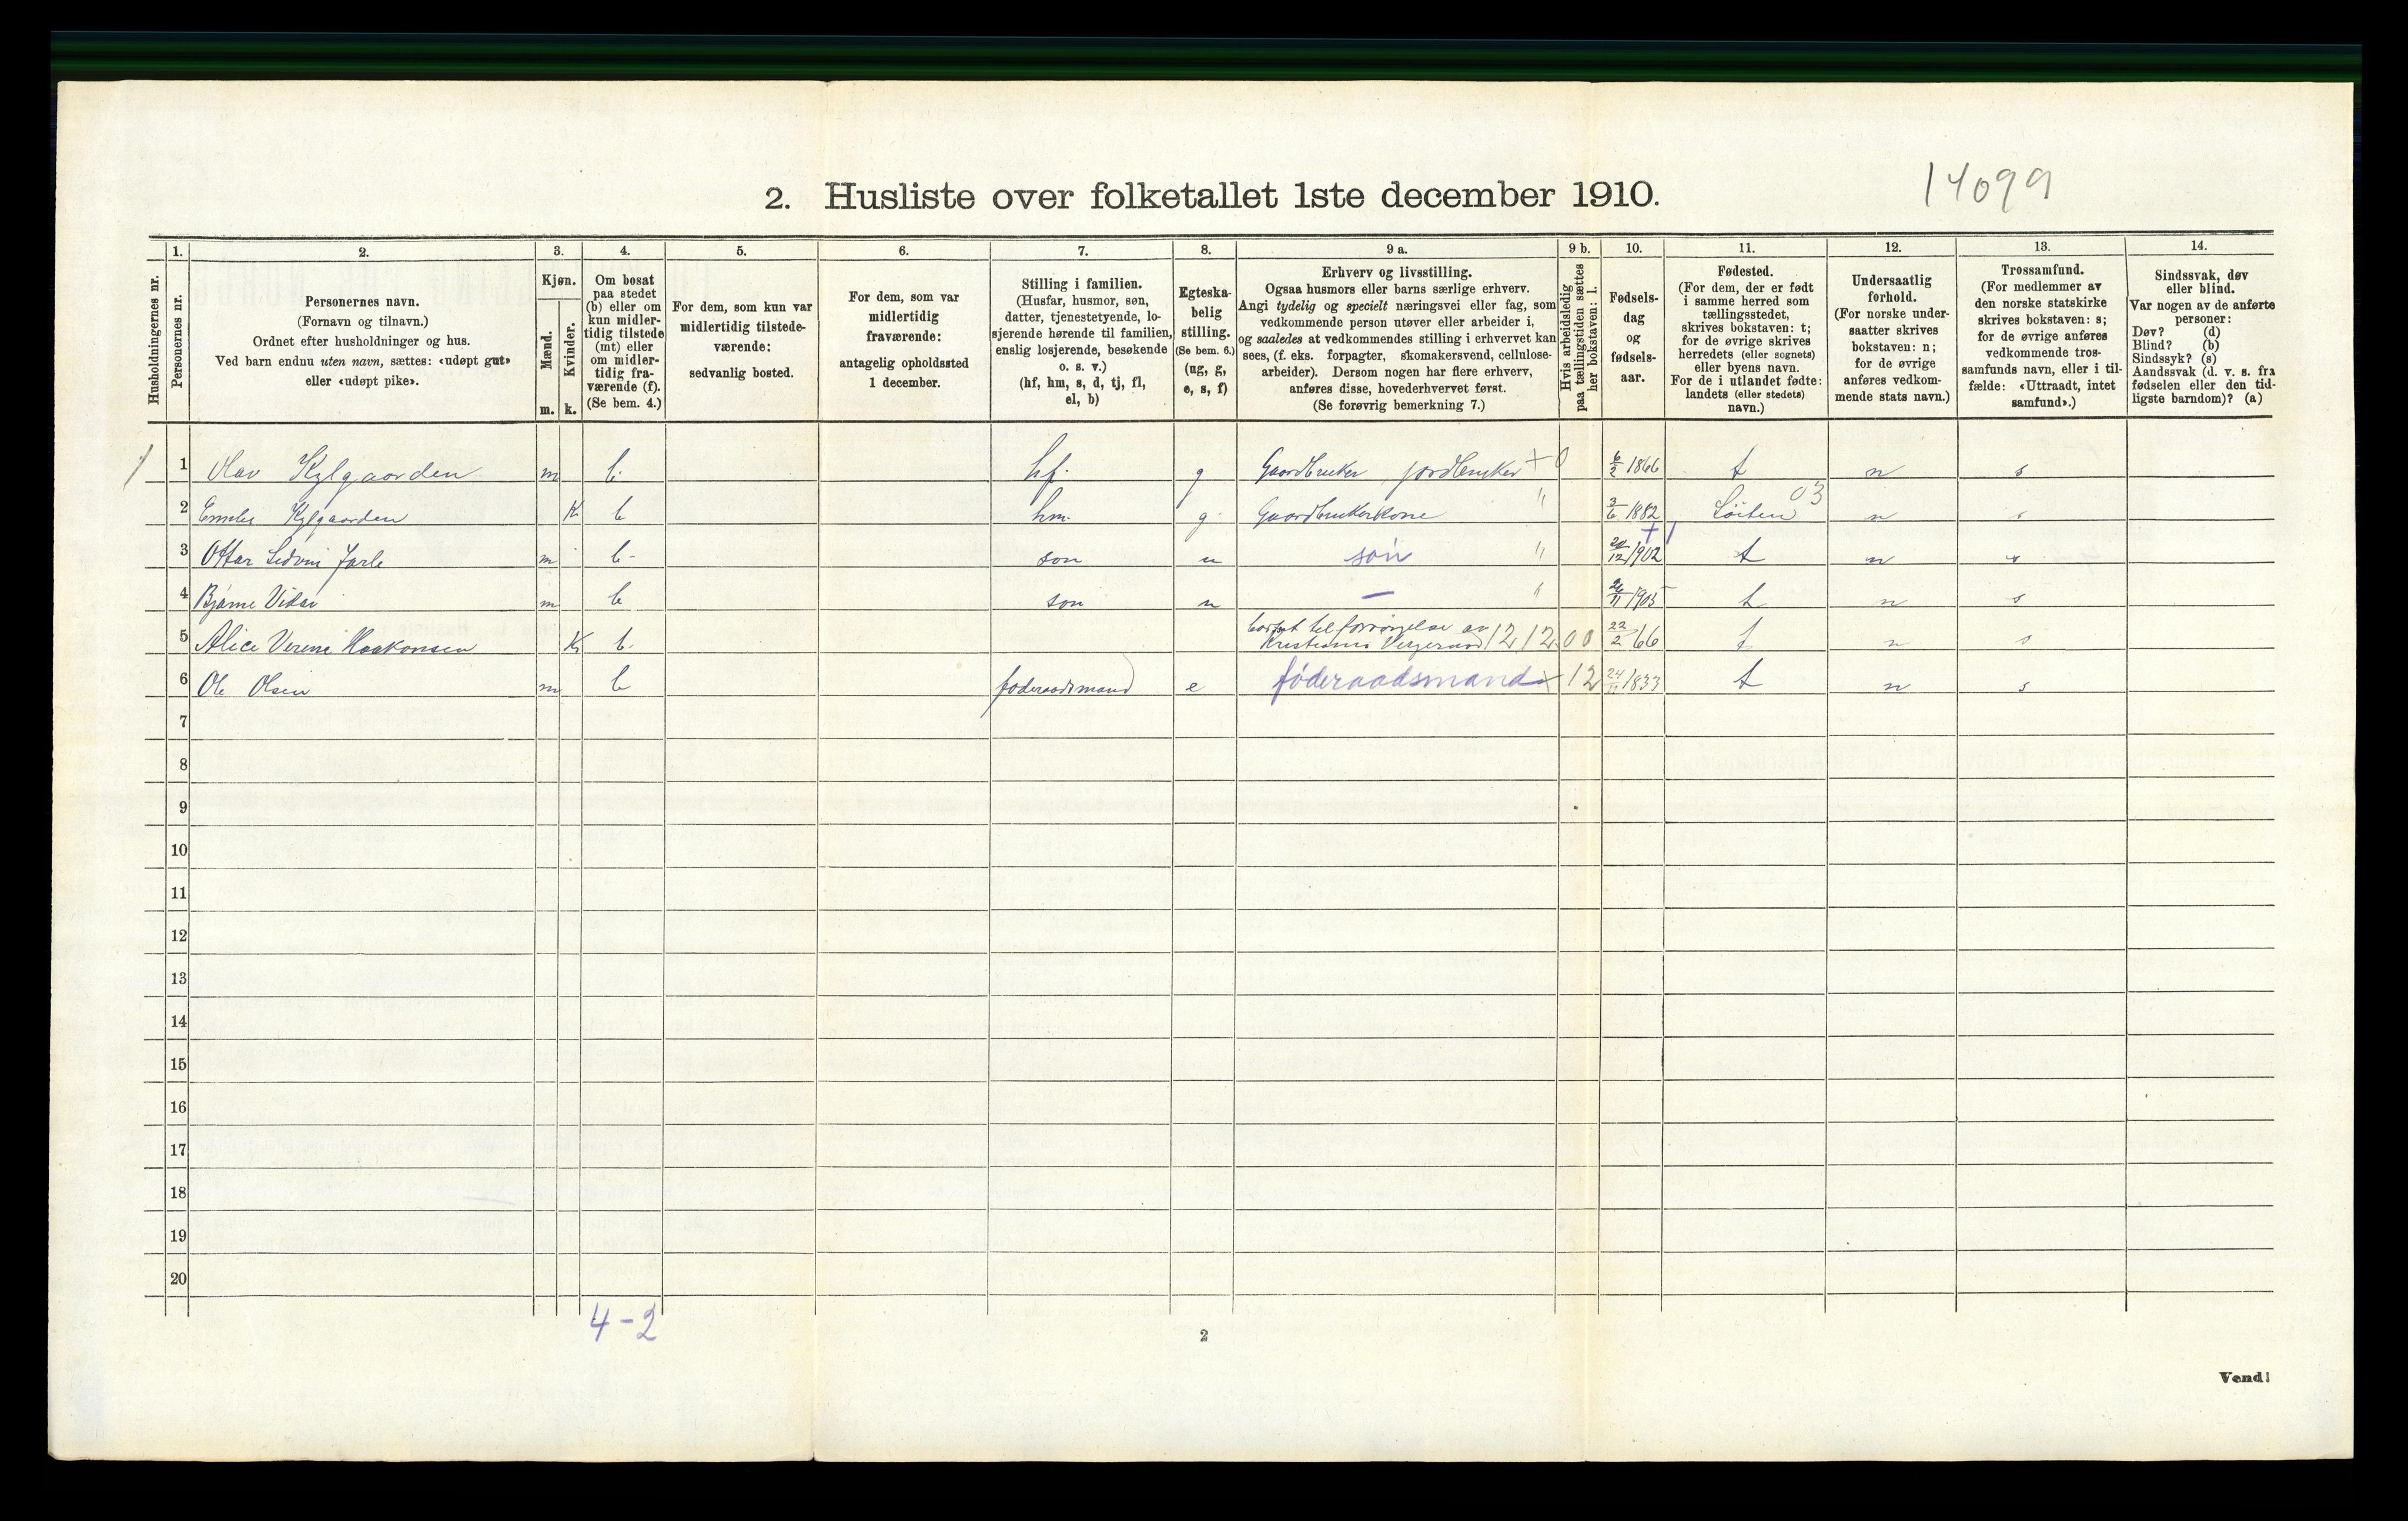 14099
2. Husliste over folketallet 1ste december 1910.
Husholdningernes nr.
1.
Personernes nr.
2.
Personernes navn.
(Fornavn og tilnavn.)
Ordnet efter husholdninger og hus.
Ved barn endnu uten navn, sættes: «udøpt gut»
eller «udøpt pike».
3.
Kjøn.
Mænd.
Kvinder.
m. k.
4.
Om bosat
paa stedet
(b) eller om
kun midler-
tidig tilstede
(mt) eller
om midler-
tidig fra-
værende (f).
(Se bem. 4.)
5.
For dem, som kun var
midlertidig tilstede-
værende:
sedvanlig bosted.
6.
For dem, som var
midlertidig
fraværende:
antagelig opholdssted
1 december.
7.
Stilling i familien.
(Husfar, husmor, søn,
datter, tjenestetyende, lo-
sjerende hørende til familien,
enslig losjerende, besøkende
o. s. v.)
(hf, hm, s, d, tj, fl,
el, b)
8.
Egteska-
belig
stilling.
(Se bem. 6.)
(ug, g,
e, s, f)
9 a.
Erhverv og livsstilling.
Ogsaa husmors eller barns særlige erhverv.
Angi tydelig og specielt næringsvei eller fag, som
vedkommende person utøver eller arbeider i,
og saaledes at vedkommendes stilling i erhvervet kan
sees, (f. eks. forpagter, skomakersvend, cellulose-
arbeider). Dersom nogen har flere erhverv,
anføres disse, hovederhvervet først.
(Se forøvrig bemerkning 7.)
9 b.
Hvis arbeidsledig
paa tællingstiden sættes
her bokstaven: l.
10.
Fødsels-
dag
og
fødsels-
aar.
11.
Fødested.
(For dem, der er født
i samme herred som
tællingsstedet,
skrives bokstaven: t;
for de øvrige skrives
herredets (eller sognets)
eller byens navn.
For de i utlandet fødte:
landets (eller stedets)
navn.)
12.
Undersaatlig
forhold.
(For norske under-
saatter skrives
bokstaven: n;
for de øvrige
anføres vedkom-
mende stats navn.)
13.
Trossamfund.
(For medlemmer av
den norske statskirke
skrives bokstaven: s;
for de øvrige anføres
vedkommende tros-
samfunds navn, eller i til-
fælde: «Uttraadt, intet
samfund».)
14.
Sindssvak, døv
eller blind.
Var nogen av de anførte
personer:
Døv? (d)
Blind? (b)
Sindssyk? (s)
Aandssvak (d. v. s. fra
fødselen eller den tid-
ligste barndom)? (a)
1 Olav Kylgaarden m b. hf. g Gaardbruker jordbruker +0 6/2 1866 t n s
2 Kylgaarden K b hm. g. Gaardbrukerkone " 3/6 1882 Löiten 03 n s
3 Ottar Jarle m b. son u søn " 20/12 1902 + 1 t n s
4 Bjarne Vidar m b son u — " 26/11 1905 t n s
5 Alice Verena Haakonsen K b. bortsat til forsørgelse av
Kristiania 12 12 00 22/2 66 t n s
6 Ole Olsen m b føderaadsmand e føderaadsmand x 12 24/11 1833 t n s
7
8
9
10
11
12
13
14
15
16
17
18
19
20
4-2
2
Vend!